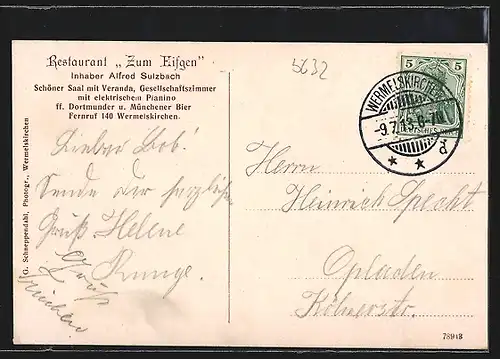 Restaurant „Zum Eifgen"
Inhaber Alfred Sulzbach
Schöner Saal mit Veranda, Gesellschaftszimmer
mit elektrischem Pianino
ff. Dortmunder u. Münchener Bier
Fernruf 140 Wermelskirchen.
5632
5 5
WERMELSKIRCHEN
-9.7.
Lieber Bob!
Sende dir herzlichen
Gruß Helene
Runge.
Gruß
G. Schneppendahl, Photogr., Wermelskirchen
Herrn
Heinrich Specht
Opladen
Kölnerstr.
78948